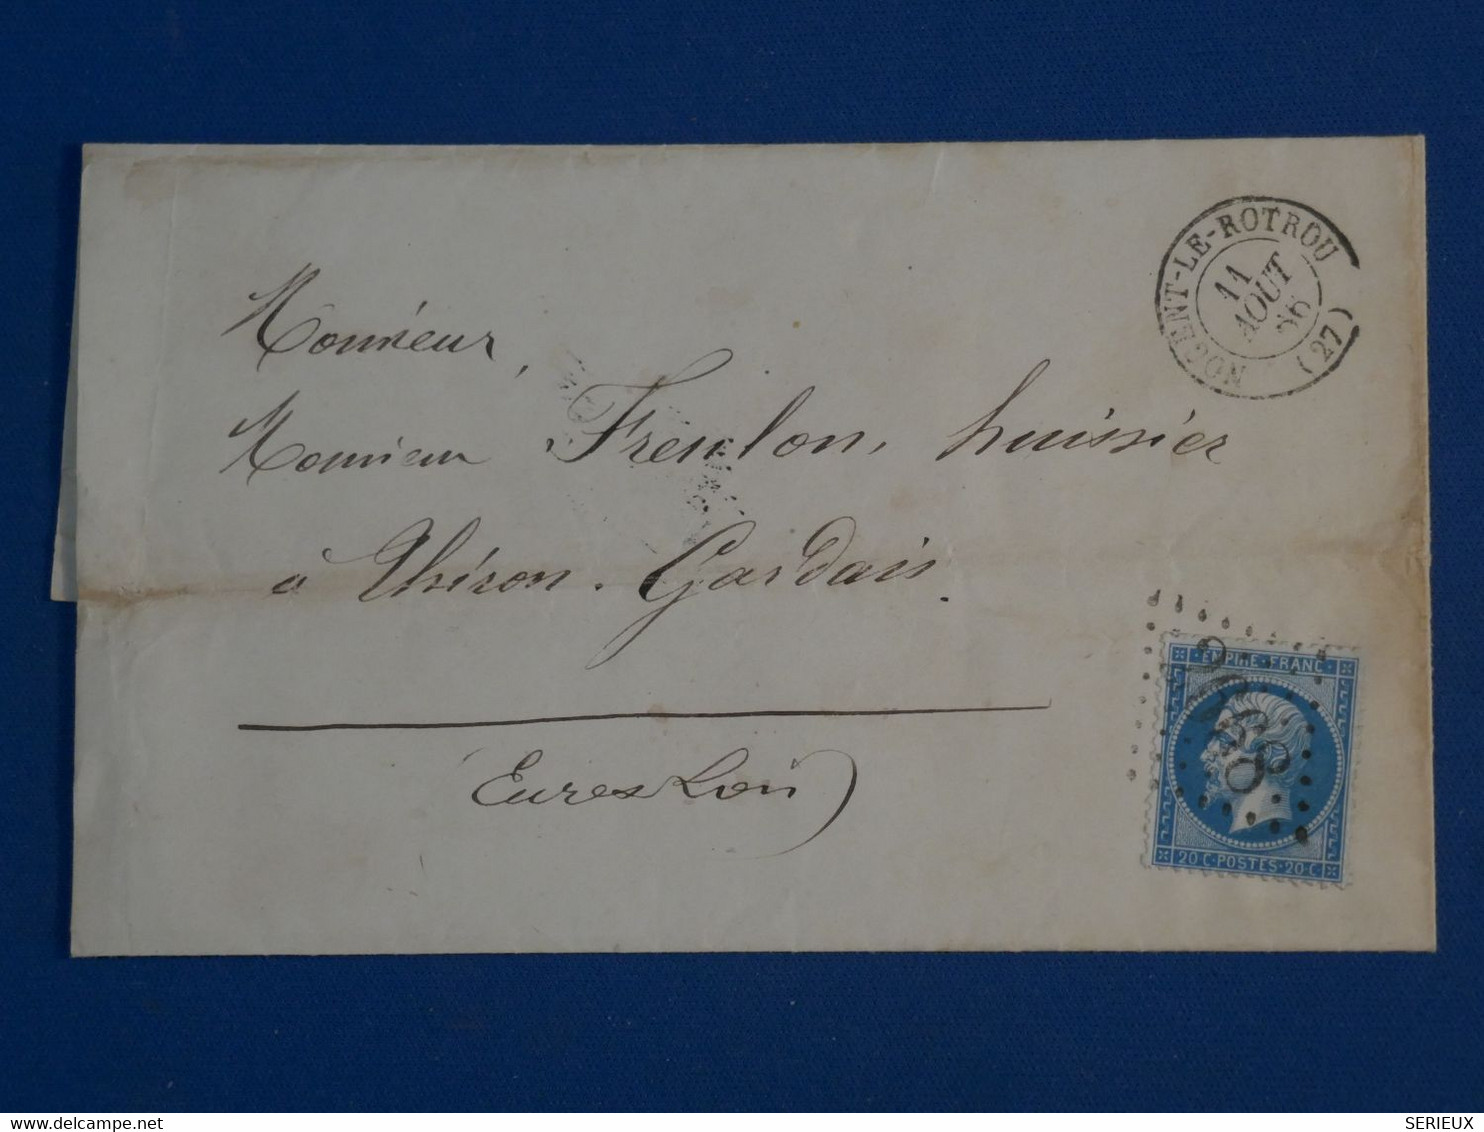 NOGENT-LE-ROTROU
11
AOUT
66
(27)
Monsieur,
Monsieur Freulon, huissier
à Thiron-Gardais.
EMPIRE · FRANC ·
2660
20 C · POSTES · 20 C
(Eure & Loir)
SERIEUX
delcampe.net